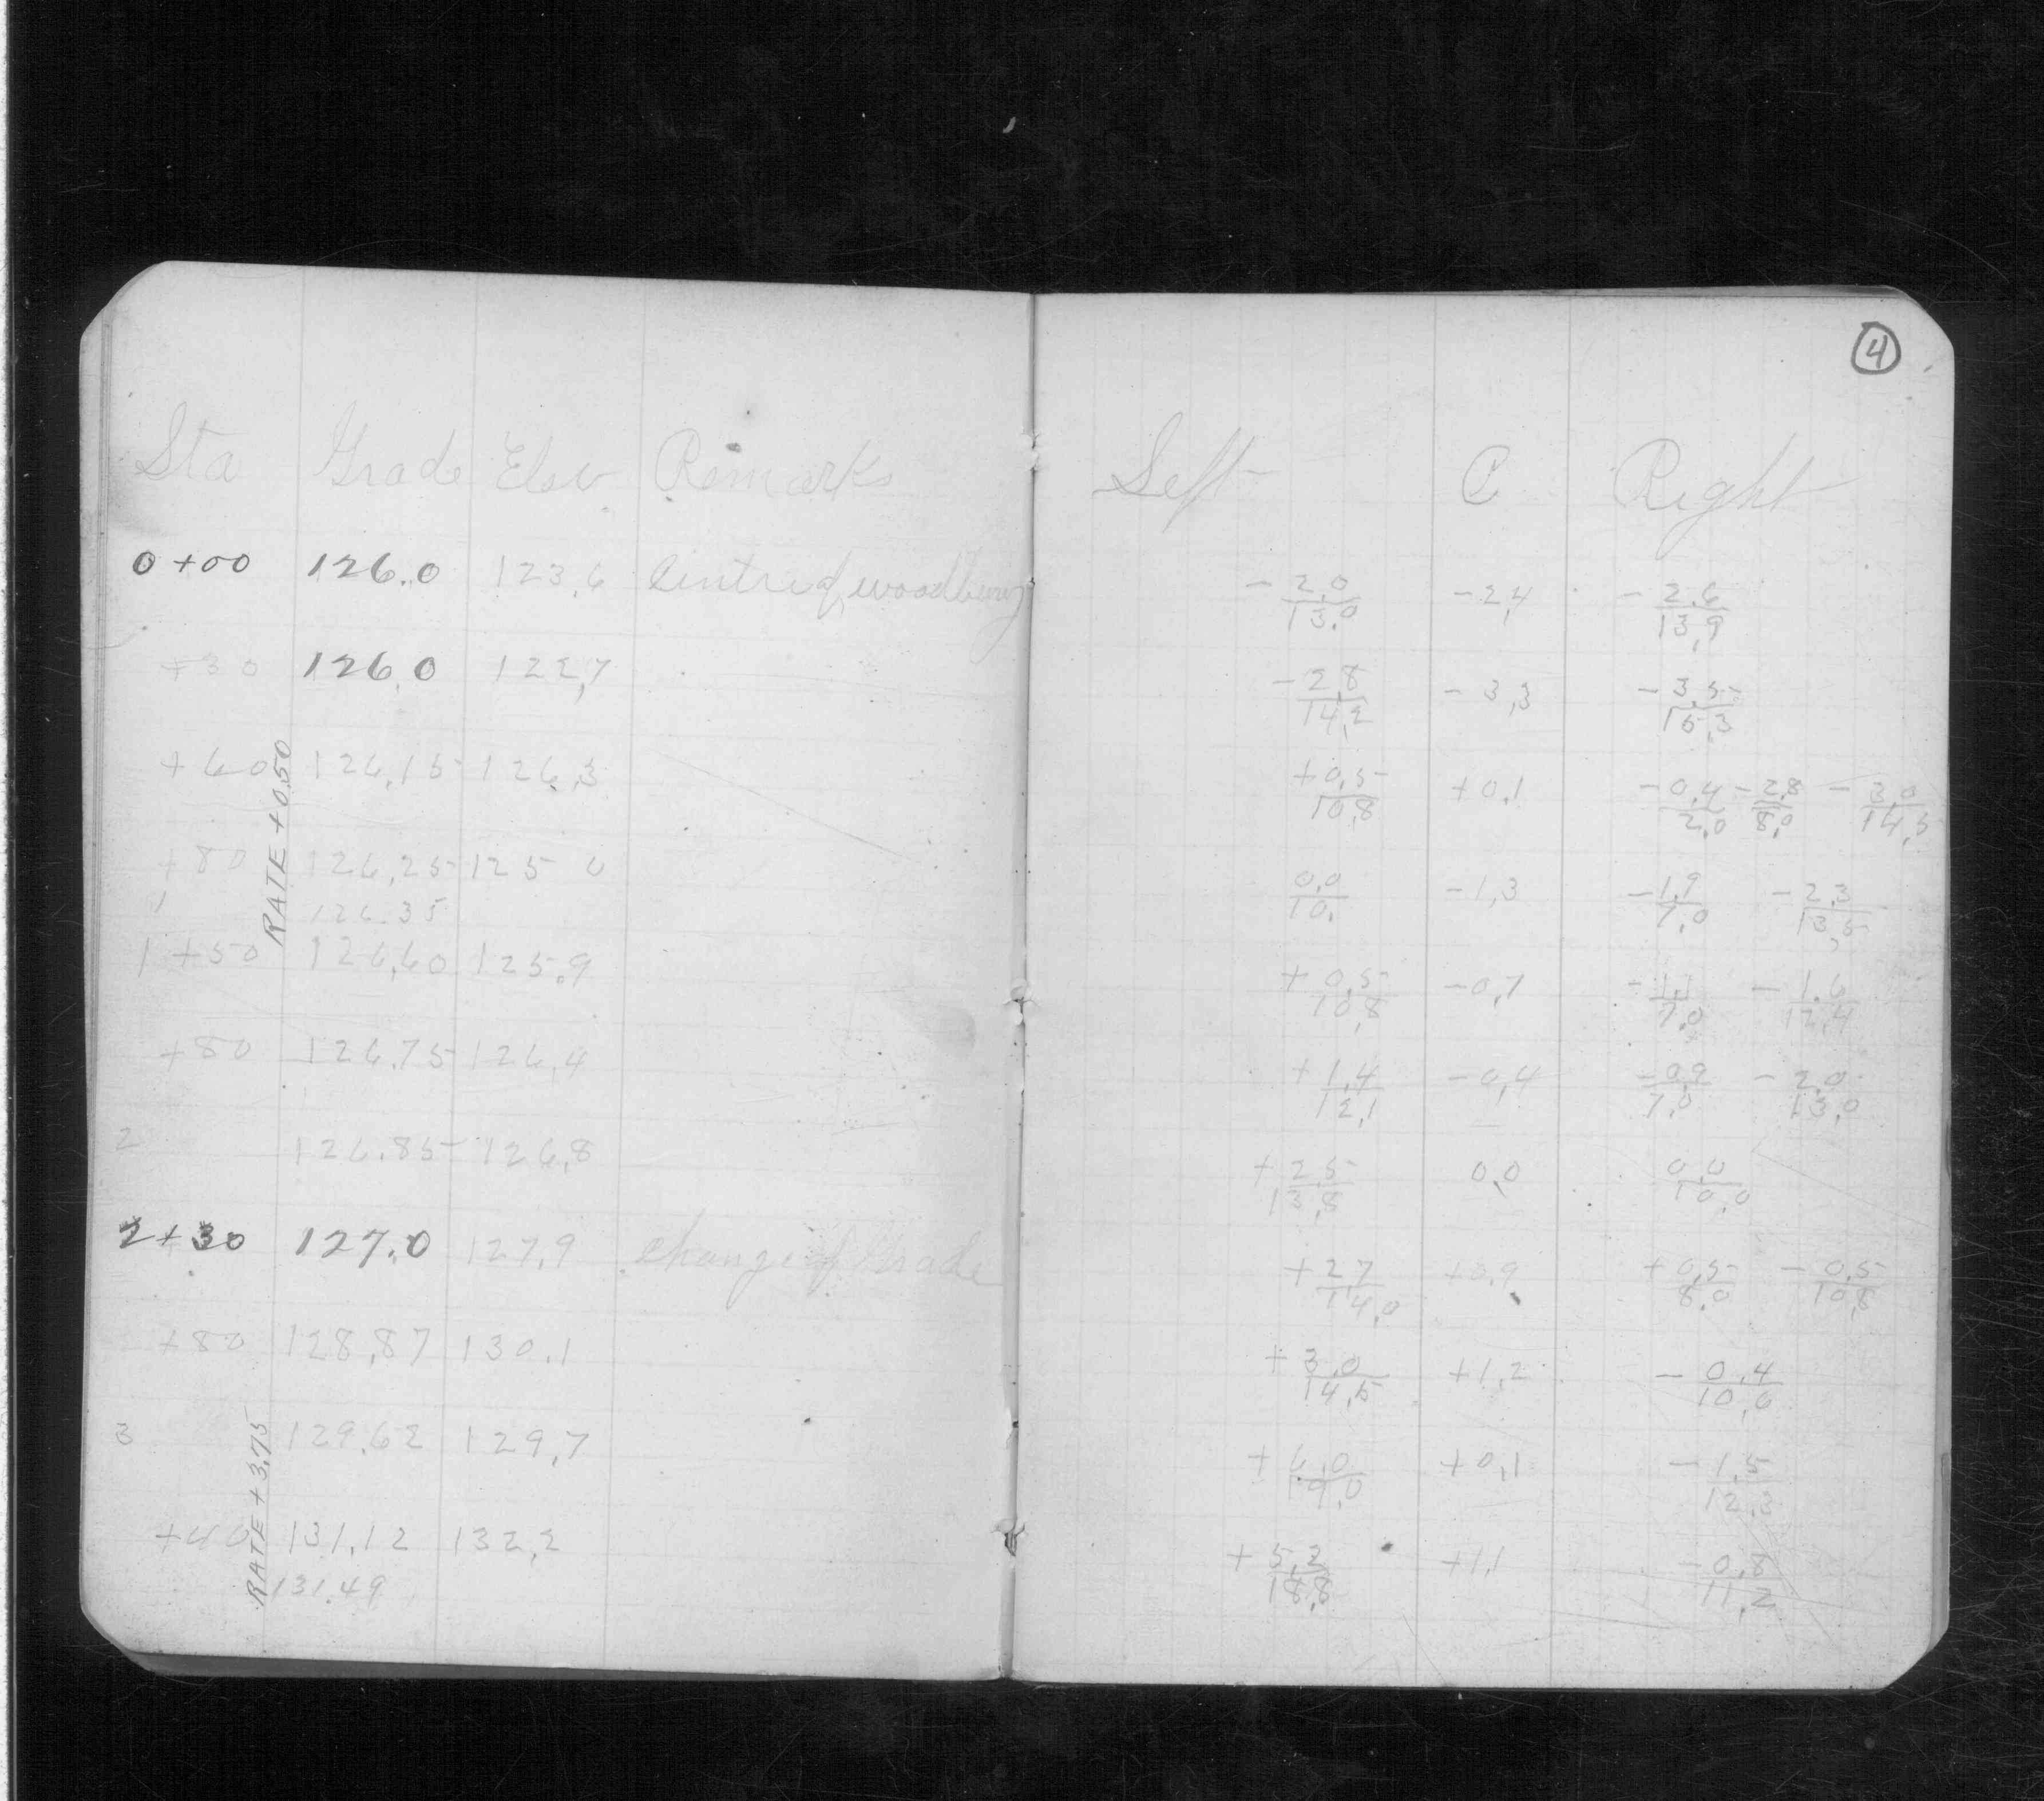 4
Sta Grade Elev Remarks Left C Right
0+00 126.0 123.6 Centre of woodbury - 2.0/13.0 -2.4 - 2.6/13.9
+30 126.0 122.7 - 2.8/14.2 - 3.3 - 3.5/15.3
+60 126.15 126.3 + 0.5/10.8 +0.1 - 0.4/2.0 - 2.8/8.0 - 3.0/14.5
RATE +0.50
+80 126.25 125 0 0.0/10. -1.3 - 1.9/7.0 - 2.3/13.5
1 126.35
1+50 126.60 125.9 + 0.5/10.8 -0.7 - 1.1/7.0 - 1.6/12.4
+80 126.75 126.4 + 1.4/12.1 -0.4 - 0.9/7.0 - 2.0/13.0
2 126.85 126.8 + 2.5/13.8 0.0 0.0/10.0
2+30 127.0 127.9 Change of Grade + 2.7/14.0 +0.9 + 0.5/8.0 - 0.5/10.8
+80 128.87 130.1 + 3.0/14.5 +1.2 - 0.4/10.6
3 129.62 129.7 + 6.0/19.0 +0.1 - 1.5/12.3
RATE +3.75
+40 131.12 132.2 + 5.2/18.8 +1.1 - 0.8/11.2
131.49